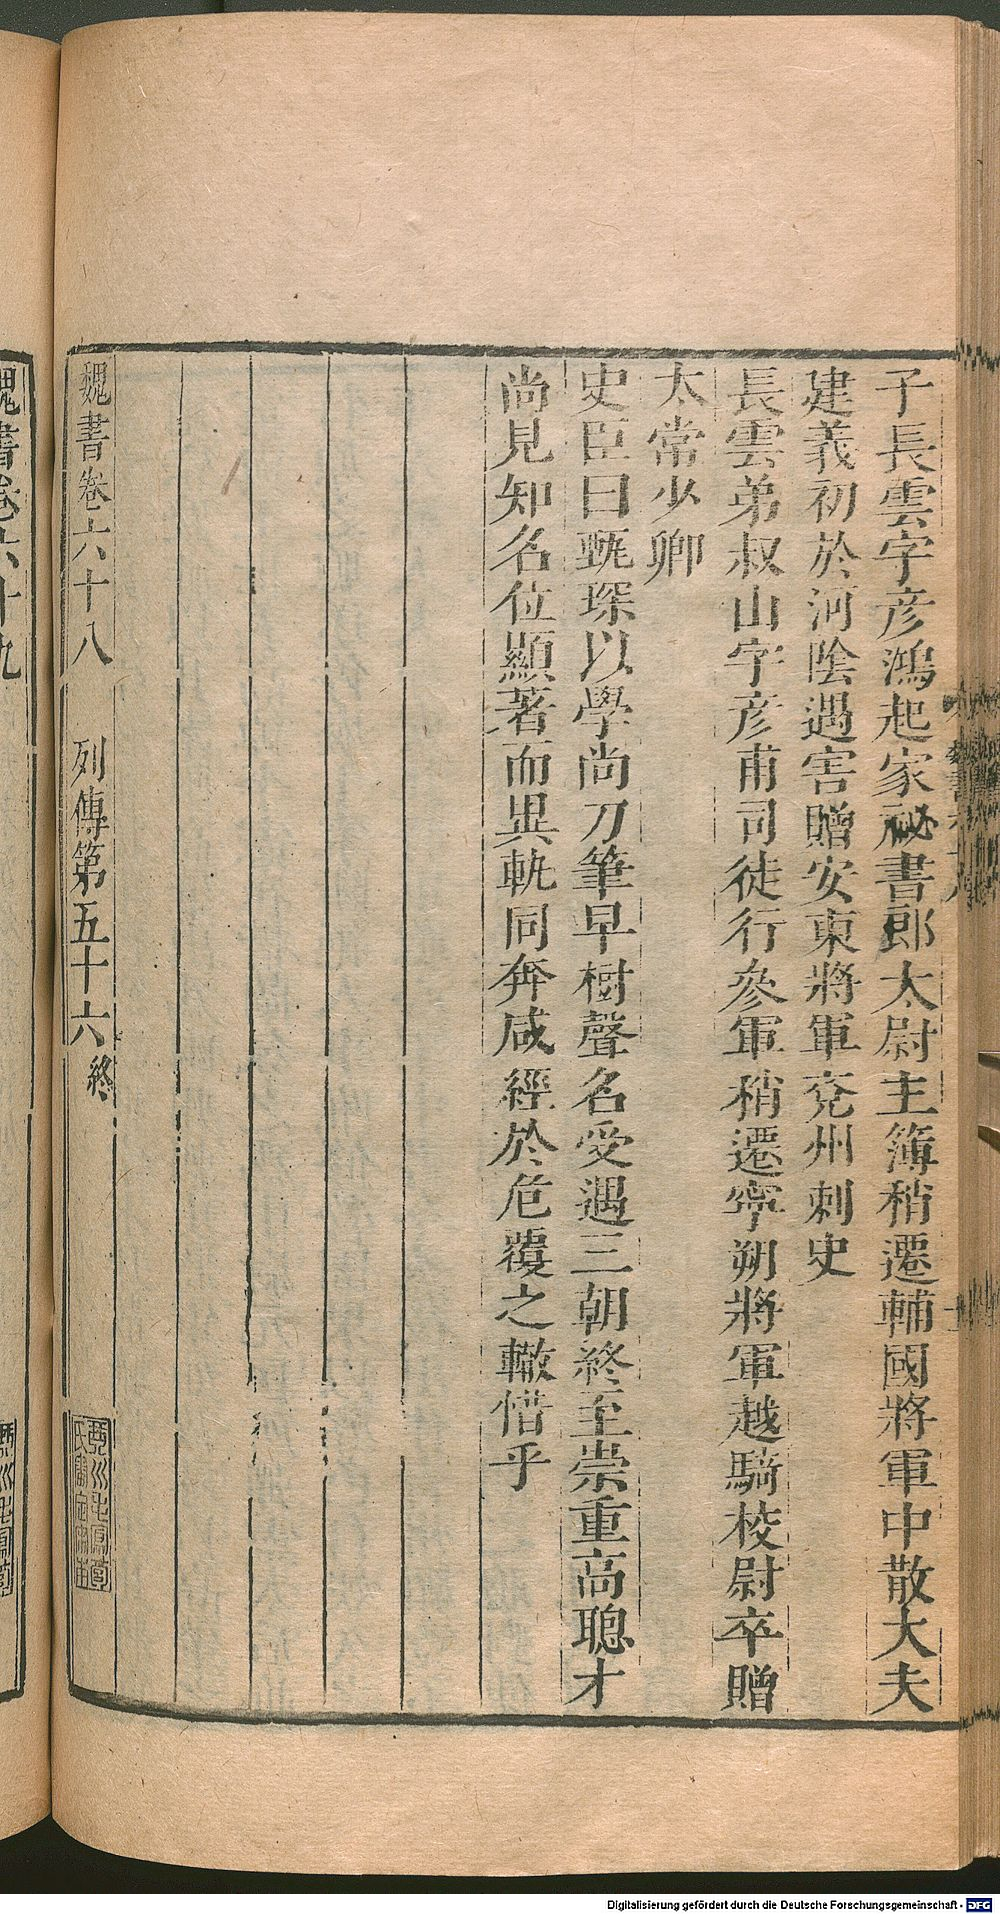 子長雲字彦鴻起家祕書郎太尉主簿稍遷輔國將軍中散大夫
建義初於河陰遇害贈安東將軍兖州刺史
長雲弟叔山字彦甫司徒行參軍稍遷寧朔將軍越騎校尉卒贈
太常少卿
史臣曰甄琛以學尚刀筆早樹聲名受遇三朝終至崇重高聰才
尚見知名位顯著而異軌同奔咸經於危覆之轍惜乎
魏書卷六十八 列傳第五十六終
魏書卷六十九
Digitalisierung gefördert durch die Deutsche Forschungsgemeinschaft - DFG